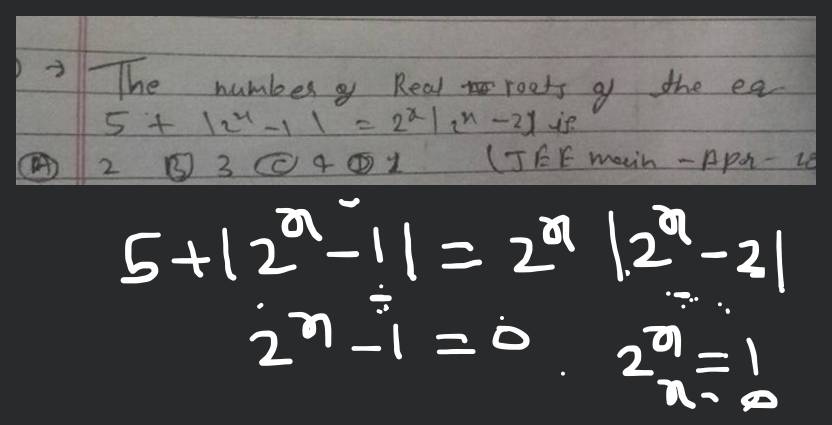 → The number of Real roots of the eq
5 + |2^x - 1| = 2^x |2^x - 2| is
(A) 2 (B) 3 (C) 4 (D) 1 (JEE main - Apr -
5 + |2^x - 1| = 2^x |2^x - 2|
2^x - 1 = 0 . 2^x = 1
x = 0